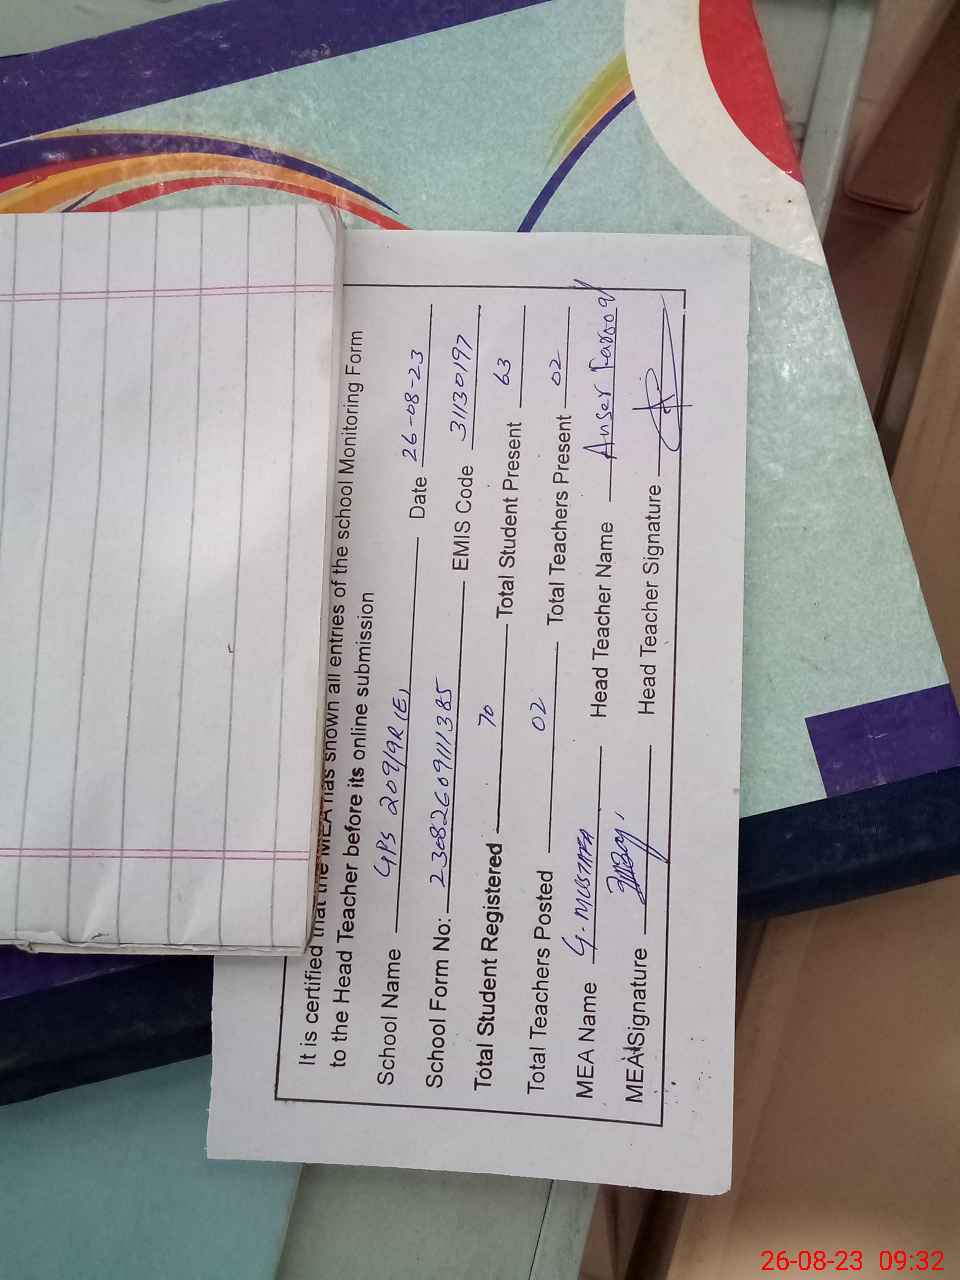 It is certified that the MEA has shown all entries of the school Monitoring Form
to the Head Teacher before its online submission
School Name GPS 209/9R (E) Date 26-08-23
School Form No: 230826091111385 EMIS Code 31130197
Total Student Registered 70 Total Student Present 63
Total Teachers Posted 02 Total Teachers Present 02
MEA Name G. MUSTAFA Head Teacher Name Anser Farooq
MEA Signature Head Teacher Signature
26-08-23 09:32